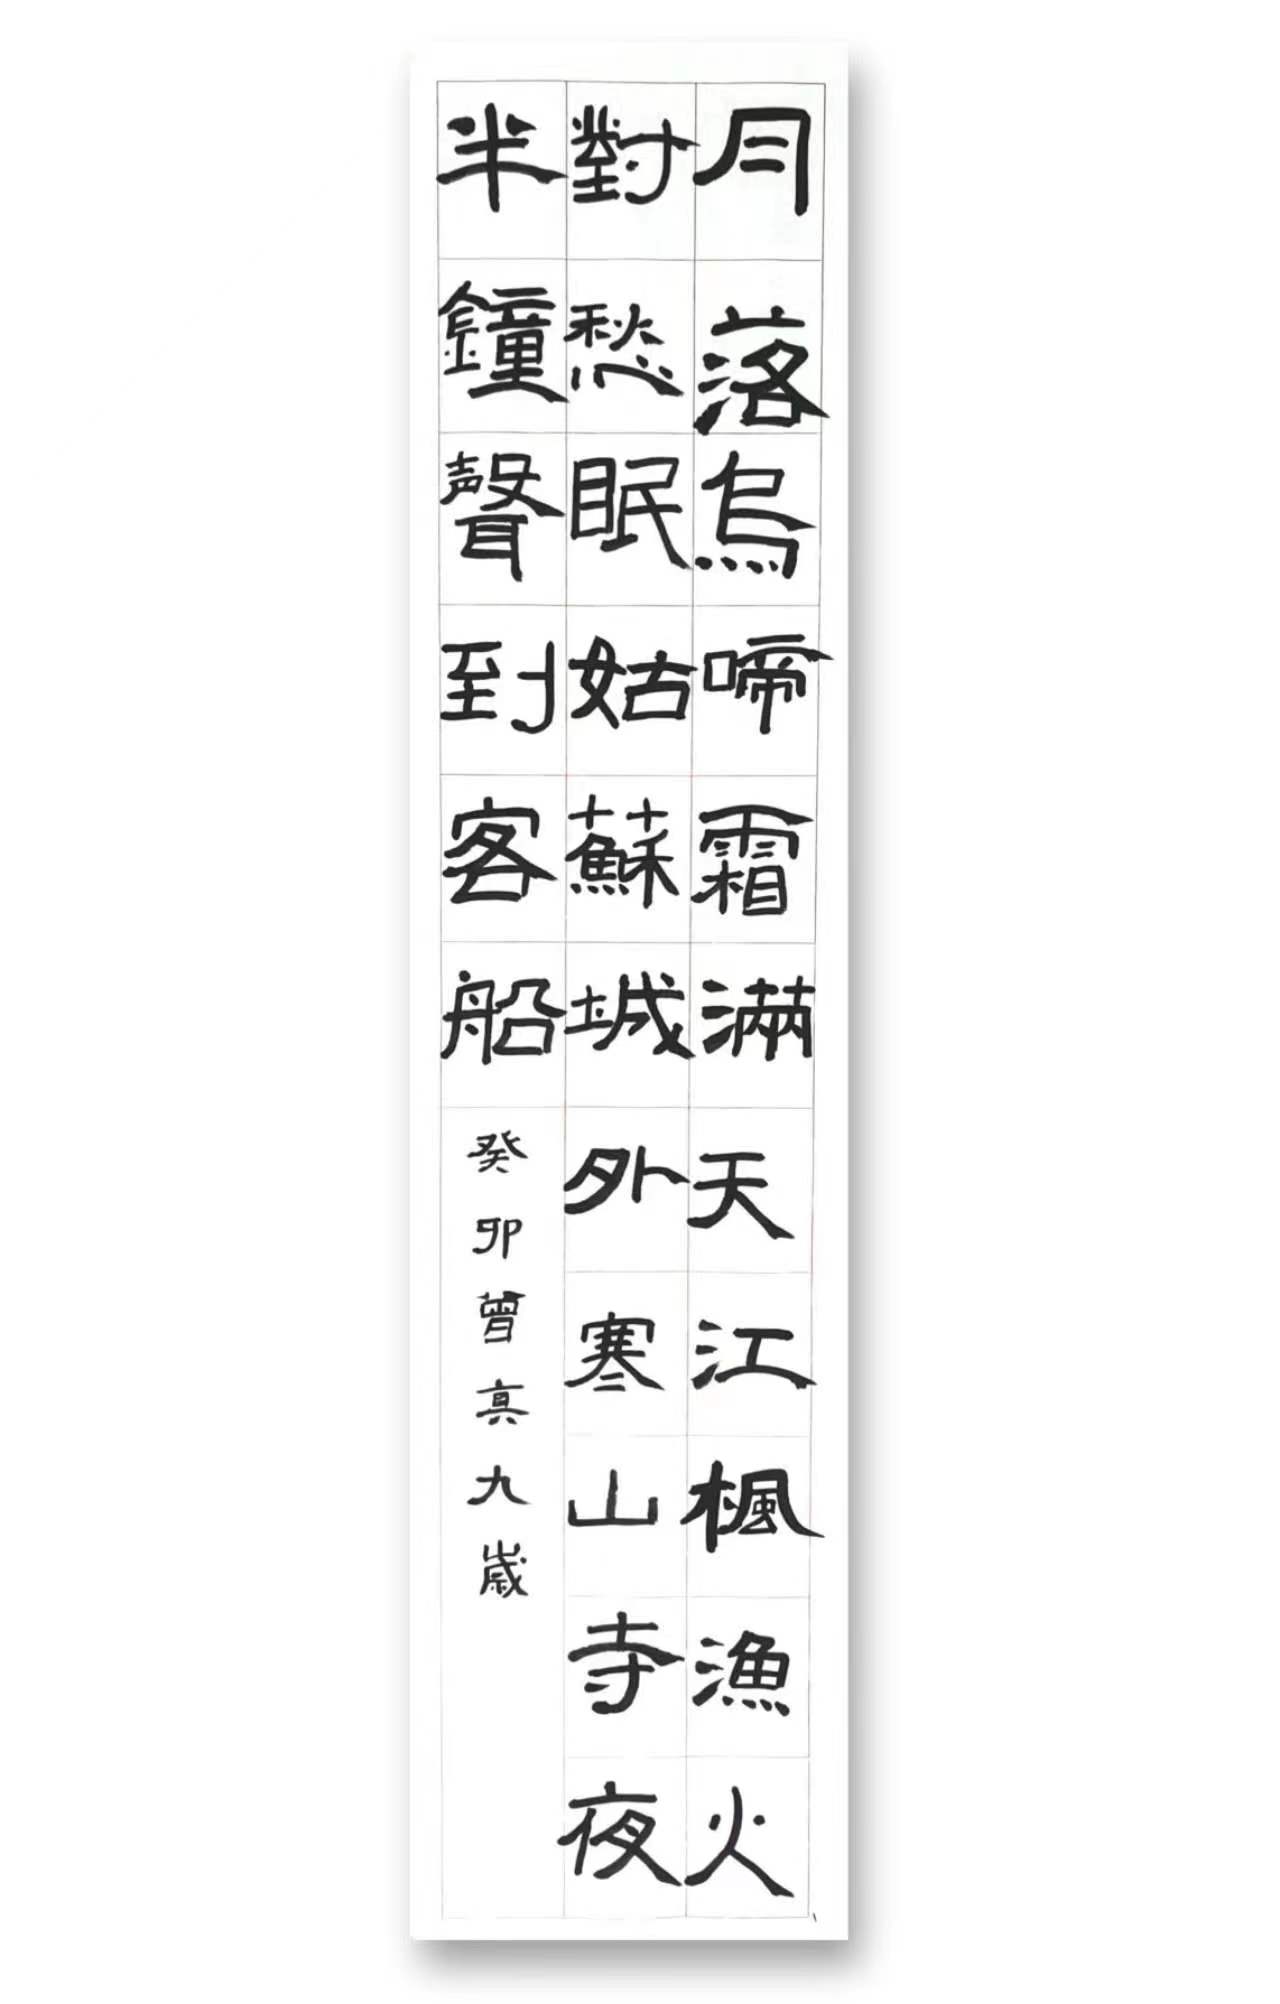 月落烏啼霜滿天江楓漁火
對愁眠姑蘇城外寒山寺夜
半鐘聲到客船
癸卯曾真九歲